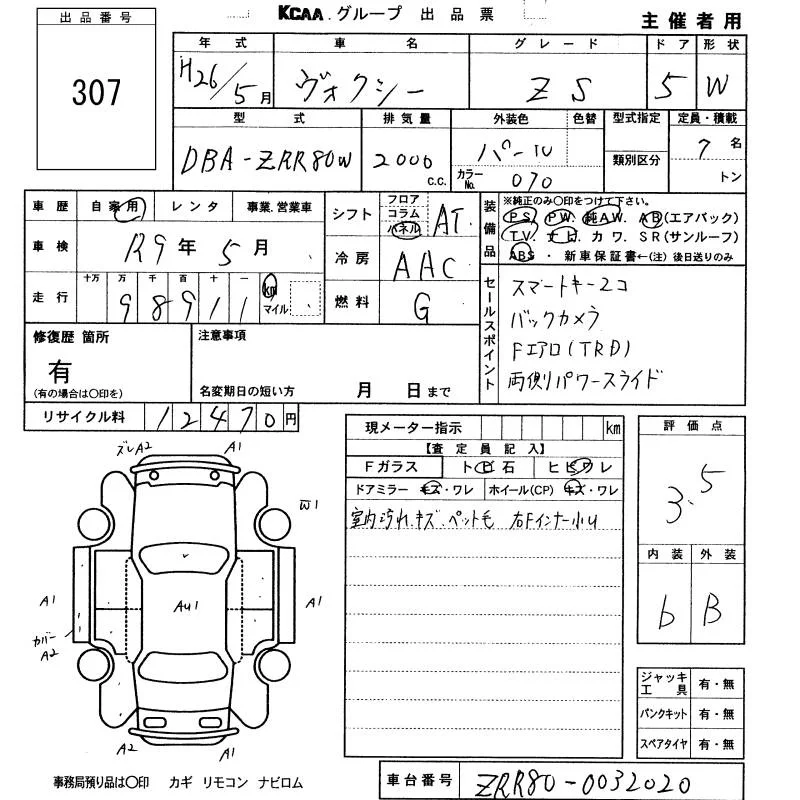 出品番号
307
KCAA.グループ 出品票
主催者用
年式 車名 グレード ドア 形状
H26/5月 ヴォクシー ZS 5 W
型式 排気量 外装色 色替 型式指定 定員・積載
DBA-ZRR80W 2000 c.c. パール 7名
カラーNo. 070 類別区分 トン
車歴 自家用 レンタ 事業.営業車
車検 R9年5月
走行 十万 万 千 百 十 一 km マイル
98911
シフト フロア コラム パネル AT
冷房 AAC
燃料 G
装備品 ※純正のみ○印をつけて下さい。
PS. PW. 純AW. AB(エアバック)
TV. ナビ. カワ. SR(サンルーフ)
ABS ・ 新車保証書←(注)後日送りのみ
セールスポイント
スマートキー2コ
バックカメラ
Fエアロ(TRD)
両側パワースライド
修復歴 箇所
有
(有の場合は○印を)
注意事項
名変期日の短い方 月 日まで
リサイクル料 12470円
現メーター指示 km
【査定員記入】
Fガラス トビ石 ヒビワレ
ドアミラー キズ・ワレ ホイール(CP) キズ・ワレ
室内汚れ、キズ、ペット毛 右Fインナー小U
評価点
3.5
内装 外装
b B
ズレA2 A1
W1
AU1
A1 A1
カバーA2
A2 A1
ジャッキ工具 有・無
パンクキット 有・無
スペアタイヤ 有・無
事務局預り品は○印 カギ リモコン ナビロム
車台番号 ZRR80-0032020